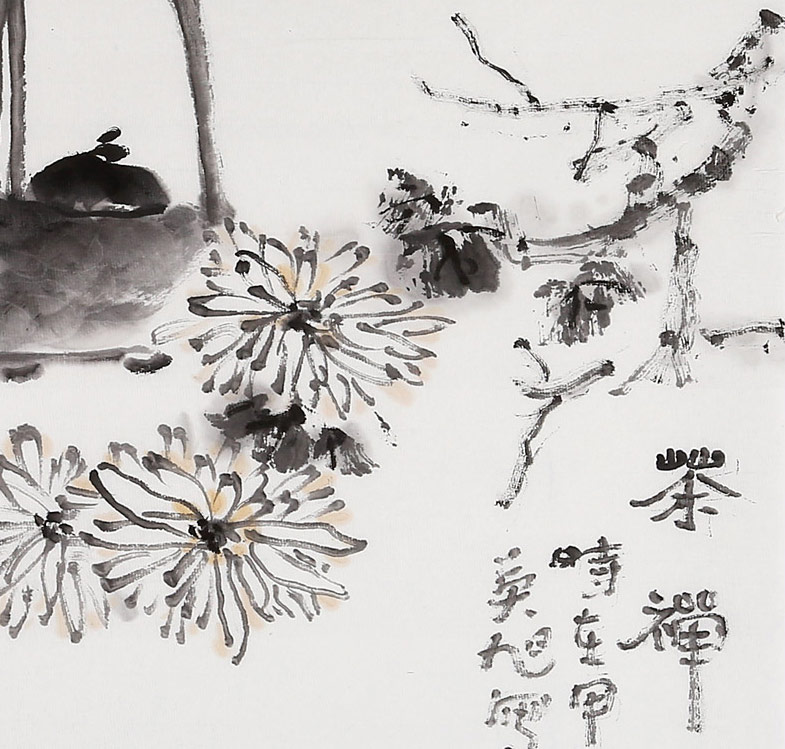 茶禪
時在甲
吴旭